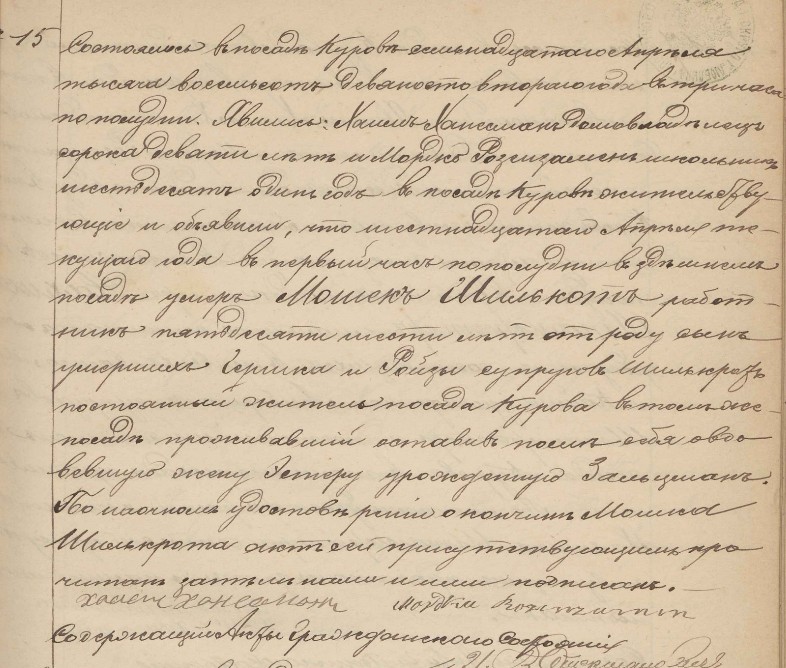 15
Состоялось въ посадѣ Куровѣ семьнадцатаго Апрѣля
тысяча восемьсотъ девяносто втораго года въ три часа
по полудни. Явились: Хаимъ Домовладѣлецъ
сорока девяти лѣтъ и Мордко школьникъ
шестьдесятъ одинъ годъ въ посадѣ Куровѣ жительству-
ющіе и объявили, что шестнадцатаго Апрѣля те-
кущаго года въ первый часъ пополудни въ здѣшнемъ
посадѣ умеръ Мошекъ Шилькотъ работ-
никъ пятьдесяти шести лѣтъ отъ роду сынъ
умершихъ и Ройзы супруговъ Шилькротъ
постоянный житель посада Курова въ томъ же
посадѣ проживавшій оставивъ послѣ себя овдо-
вевшую жену Эстеру урожденную Зальцманъ.
По наочномъ удостовѣреніи о кончинѣ Мошка
Шилькрота актъ сей присутствующимъ про
читанъ затѣмъ нами и ими подписанъ.
Содержащій Акты Гражданскаго Состоянія